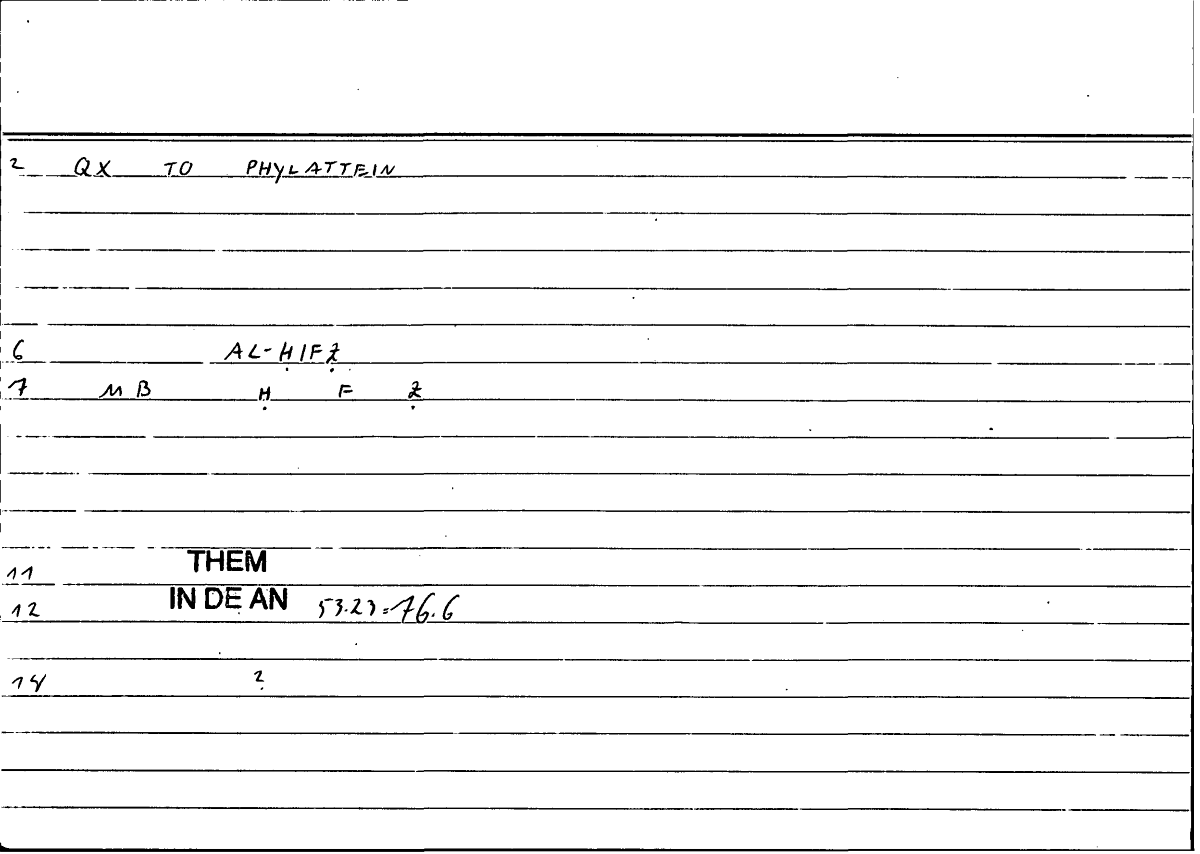 2 QX TO PHYLATTEIN
6 AL-ḤIFẒ
7 MB Ḥ F Ẓ
11 THEM
12 IN DE AN 53.23=76.6
14 2